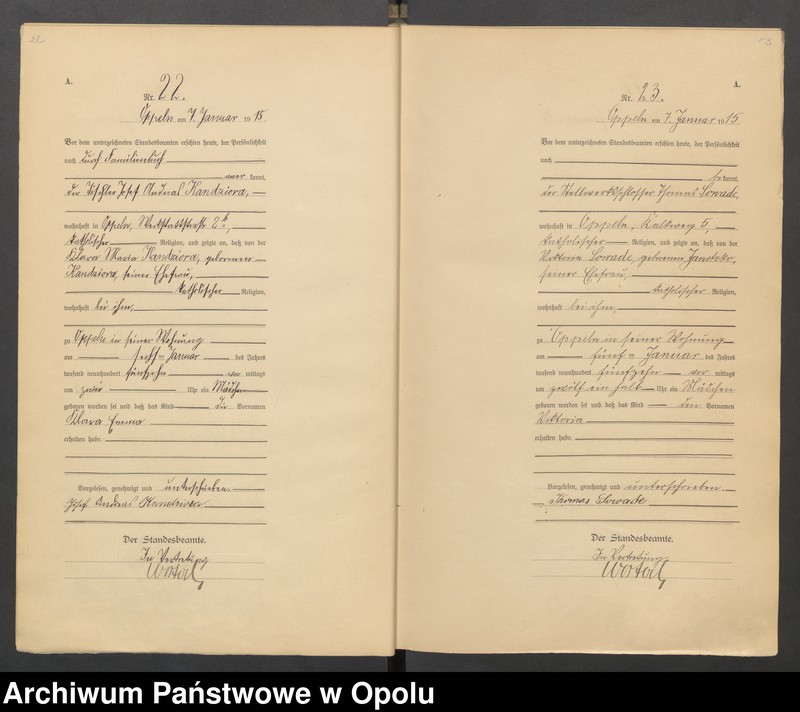 22
A.
Nr. 22.
Oppeln am 7. Januar 1915
Vor dem unterzeichneten Standesbeamten erschien heute, der Persönlichkeit
nach durch Familienbuch
aner kannt,
der Tischler Josef Andreas Kandziora,
wohnhaft in Oppeln, Werkstattstraße 2
katholischer Religion, und zeigte an, daß von der
Klara Maria Kandziora, geborenen
Kandziora, seiner Ehefrau,
katholischer Religion,
wohnhaft bei ihm,
zu Oppeln in seiner Wohnung
am sechs= Januar des Jahres
tausend neunhundert fünfzehn vor mittags
um Uhr ein Mädchen
geboren worden sei und daß das Kind die Vornamen
Klara Emma
erhalten habe.
Vorgelesen, genehmigt und unterschrieben.
Josef Andreas Kandziora
Der Standesbeamte.
In Vertretung
23
A.
Nr. 23.
Oppeln am 7. Januar 1915
Vor dem unterzeichneten Standesbeamten erschien heute, der Persönlichkeit
nach
be kannt,
der Stellwerksschlosser Thomas Sowade,
wohnhaft in Oppeln, Kalkweg 5,
katholischer Religion, und zeigte an, daß von der
Viktoria Sowade, geborenen
seiner Ehefrau,
katholischer Religion,
wohnhaft bei ihm,
zu Oppeln in seiner Wohnung
am fünf= Januar des Jahres
tausend neunhundert fünfzehn vor mittags
um zwölf ein halb Uhr ein Mädchen
geboren worden sei und daß das Kind den Vornamen
Viktoria
erhalten habe.
Vorgelesen, genehmigt und unterschrieben.
Thomas Sowade
Der Standesbeamte.
In Vertretung
Archiwum Państwowe w Opolu